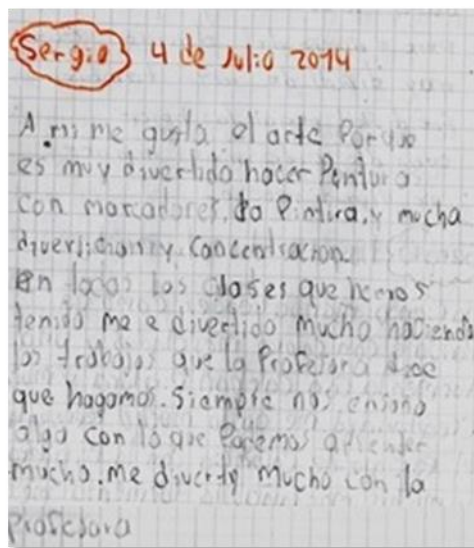 Sergio 4 de Julio 2014
A mi me gusta el arte Porque
es muy divertido hacer Pintura
con marcadores, do Pintura. y mucha
diverjichon y Concentracion.
En todas las clases que hemos
tenido me e divertido mucho haciendo
los trabajos que la Profesora dice
que hagamos. Siempre nos enseña
algo con lo que Podemos aprender
mucho. me diverty mucho con la
profesora